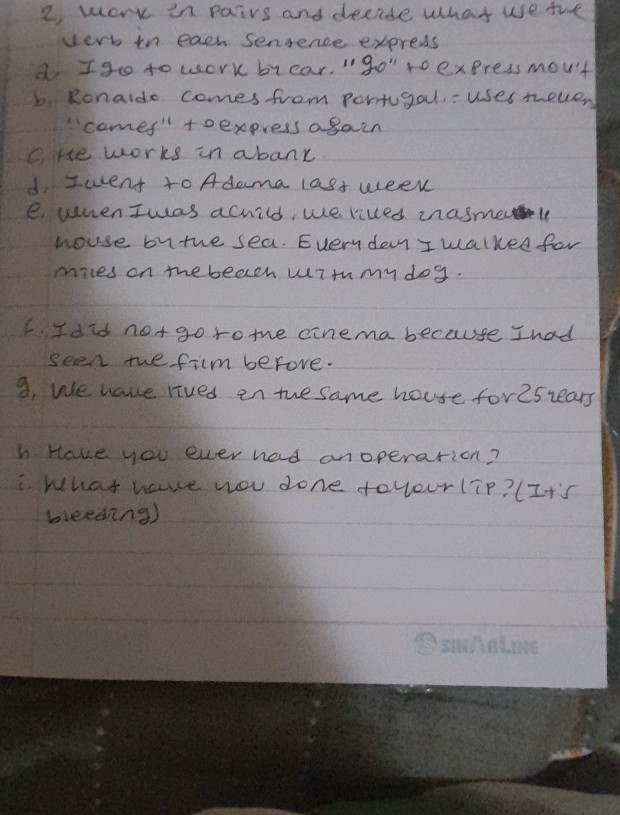 2, work in pairs and decide what use the
verb in each sentence express
a. I go to work by car. "go" to express
b. Ronaldo comes from Portugal. = uses
"comes" to express again
c, He works in a bank
d, I went to Adama last week
e. when I was a child, we lived in a small
house by the sea. Every day I walked for
miles on the beach with my dog.
f. I did not go to the cinema because I had
seen the film before.
g, We have lived in the same house for 25 years
h. Have you ever had an operation?
i. What have you done to your lip? (It's
bleeding)
SINARLINE